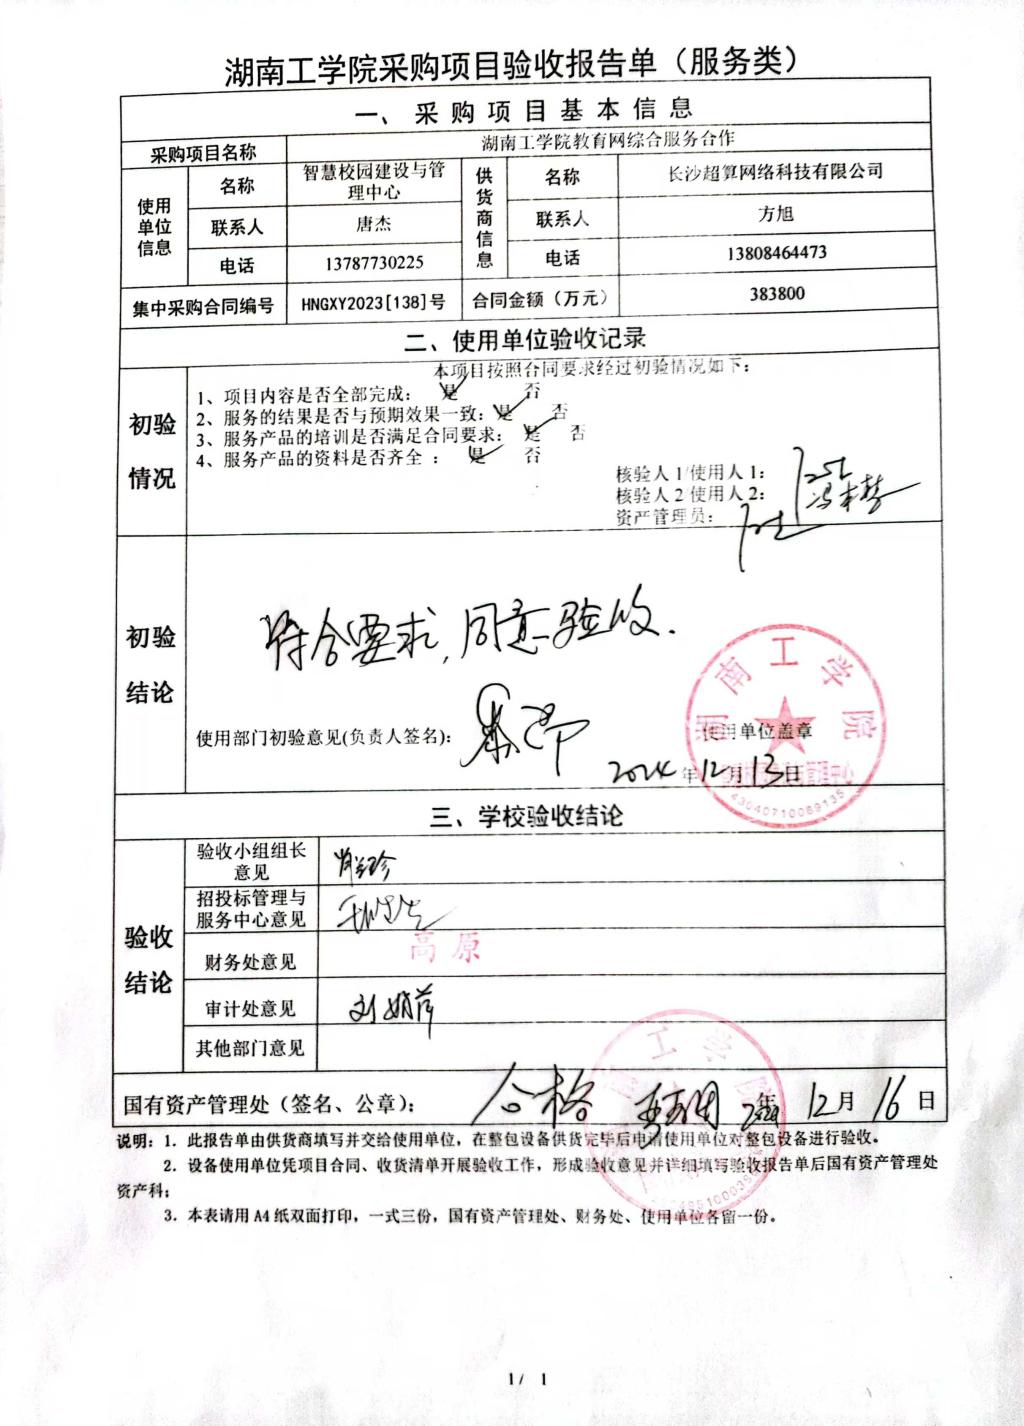 湖南工学院采购项目验收报告单（服务类）
一、采购项目基本信息
采购项目名称 湖南工学院教育网综合服务合作
使用单位信息 名称 智慧校园建设与管理中心 供货商信息 名称 长沙超算网络科技有限公司
联系人 唐杰 联系人 方旭
电话 13787730225 电话 13808464473
集中采购合同编号 HNGXY2023[138]号 合同金额（万元） 383800
二、使用单位验收记录
初验情况
本项目按照合同要求经过初验情况如下：
1、项目内容是否全部完成： 是 否
2、服务的结果是否与预期效果一致：是 否
3、服务产品的培训是否满足合同要求： 是 否
4、服务产品的资料是否齐全 ： 是 否
核验人1/使用人1：
核验人2 使用人2：
资产管理员：
初验结论
符合要求,同意验收.
使用部门初验意见(负责人签名)：
使用单位盖章
2024年12月13日
湖南工学院
4304071006913
三、学校验收结论
验收结论
验收小组组长意见
招投标管理与服务中心意见
高原
财务处意见
审计处意见 刘娟萍
其他部门意见
国有资产管理处（签名、公章）： 合格 年12月16日
说明：1. 此报告单由供货商填写并交给使用单位，在整包设备供货完毕后申请使用单位对整包设备进行验收。
2. 设备使用单位凭项目合同、收货清单开展验收工作，形成验收意见并详细填写验收报告单后国有资产管理处
资产科；
3. 本表请用A4纸双面打印，一式三份，国有资产管理处、财务处、使用单位各留一份。
1/ 1